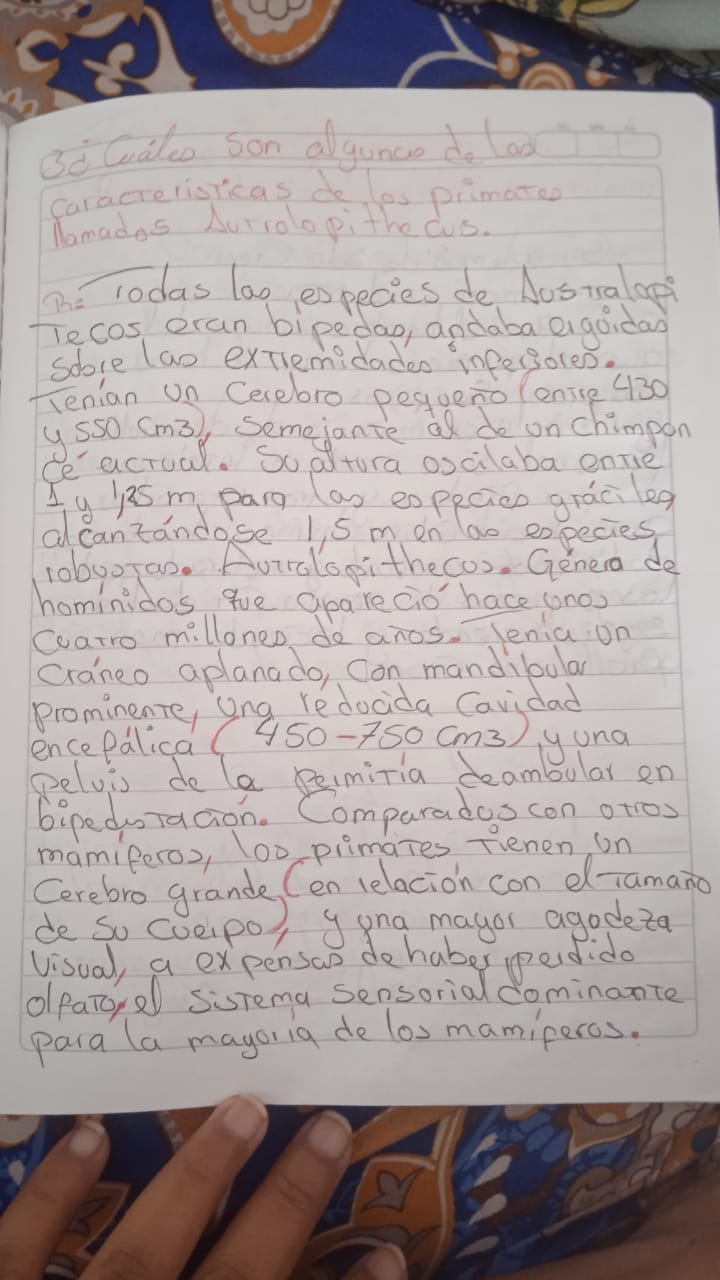 3¿ Cuáles son algunas de las
características de los primates
llamados Aurrolopithecus.
R= Todas las especies de Australopi
Tecos eran bipedas, andaba erguidas
sobre las extremidades inferiores.
Tenían un Cerebro pequeño (entre 430
y 550 cm3), Semejante al de un chimpan
cé actual. Su altura oscilaba entre
1 y 1,25 m para las especies gráciles
alcanzándose 1,5 m en las especies
robustas. Aurralopithecus. Género de
homínidos que apareció hace unos
Cuatro millones de años. Tenía un
Cráneo aplanado, Con mandibular
prominente, una reducida Cavidad
encefálica (450-750 cm3) y una
pelvis de la permitía deambular en
bipedustación. Comparados con otros
mamíferos, los primates tienen un
Cerebro grande (en relación con el Tamaño
de su Cuerpo), y una mayor agudeza
Visual, a expensas de haber perdido
olfato, el sistema sensorial dominante
para la mayoría de los mamíferos.